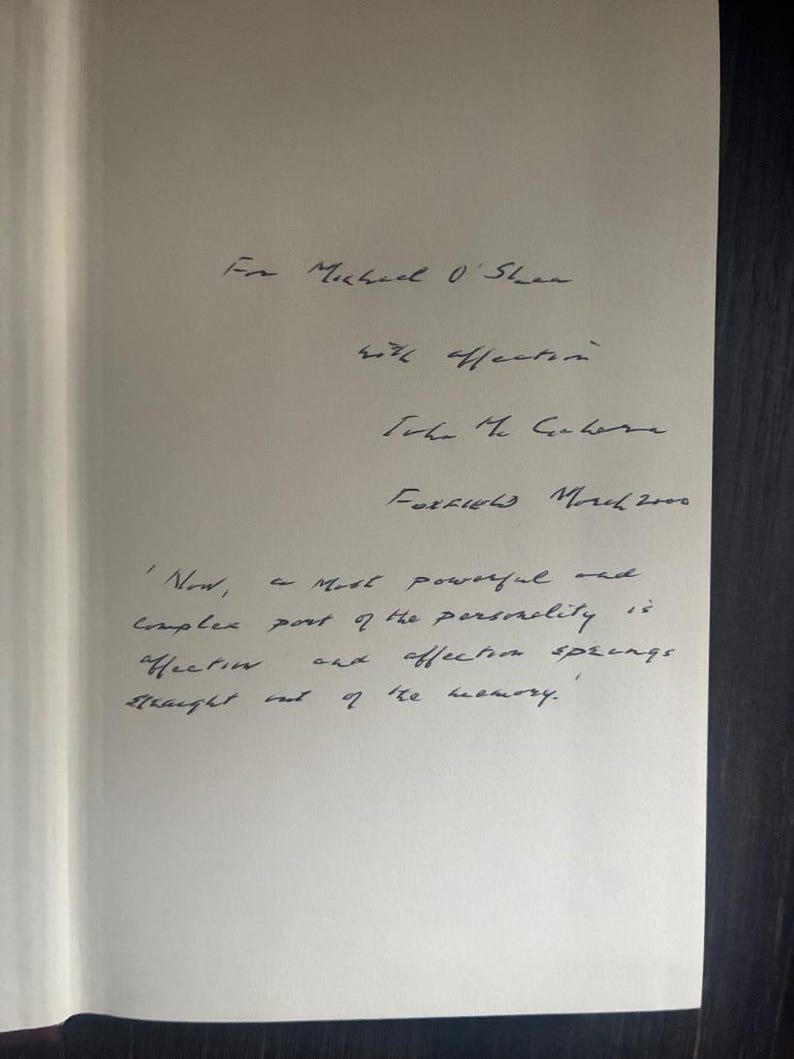 For Michael O'Shea
with affection
John McGahern
Foxfield March 2000
'Now, a most powerful and
complex part of the personality is
affection and affection springs
straight out of the memory.'